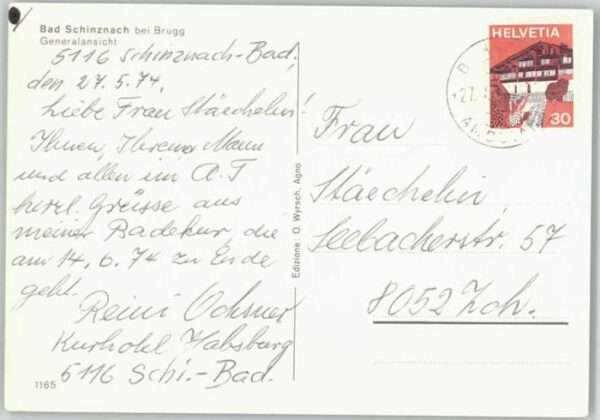 Bad Schinznach bei Brugg
Generalansicht
5116 Schinznach-Bad,
den 27.5.74,
Liebe Frau Stäechelin!
Ihnen, Ihrem Mann
und allen im A.T
herzl. Grüsse aus
meiner Badekur, die
am 14.6.74 zu Ende
geht.
Reini Ochsner
Kurhotel Habsburg
5116 Schi.-Bad.
1165
Edizione: O. Wyrsch, Agno
HELVETIA
30
Frau
Stäechelin,
Seebacherstr. 57
8052 Zch.